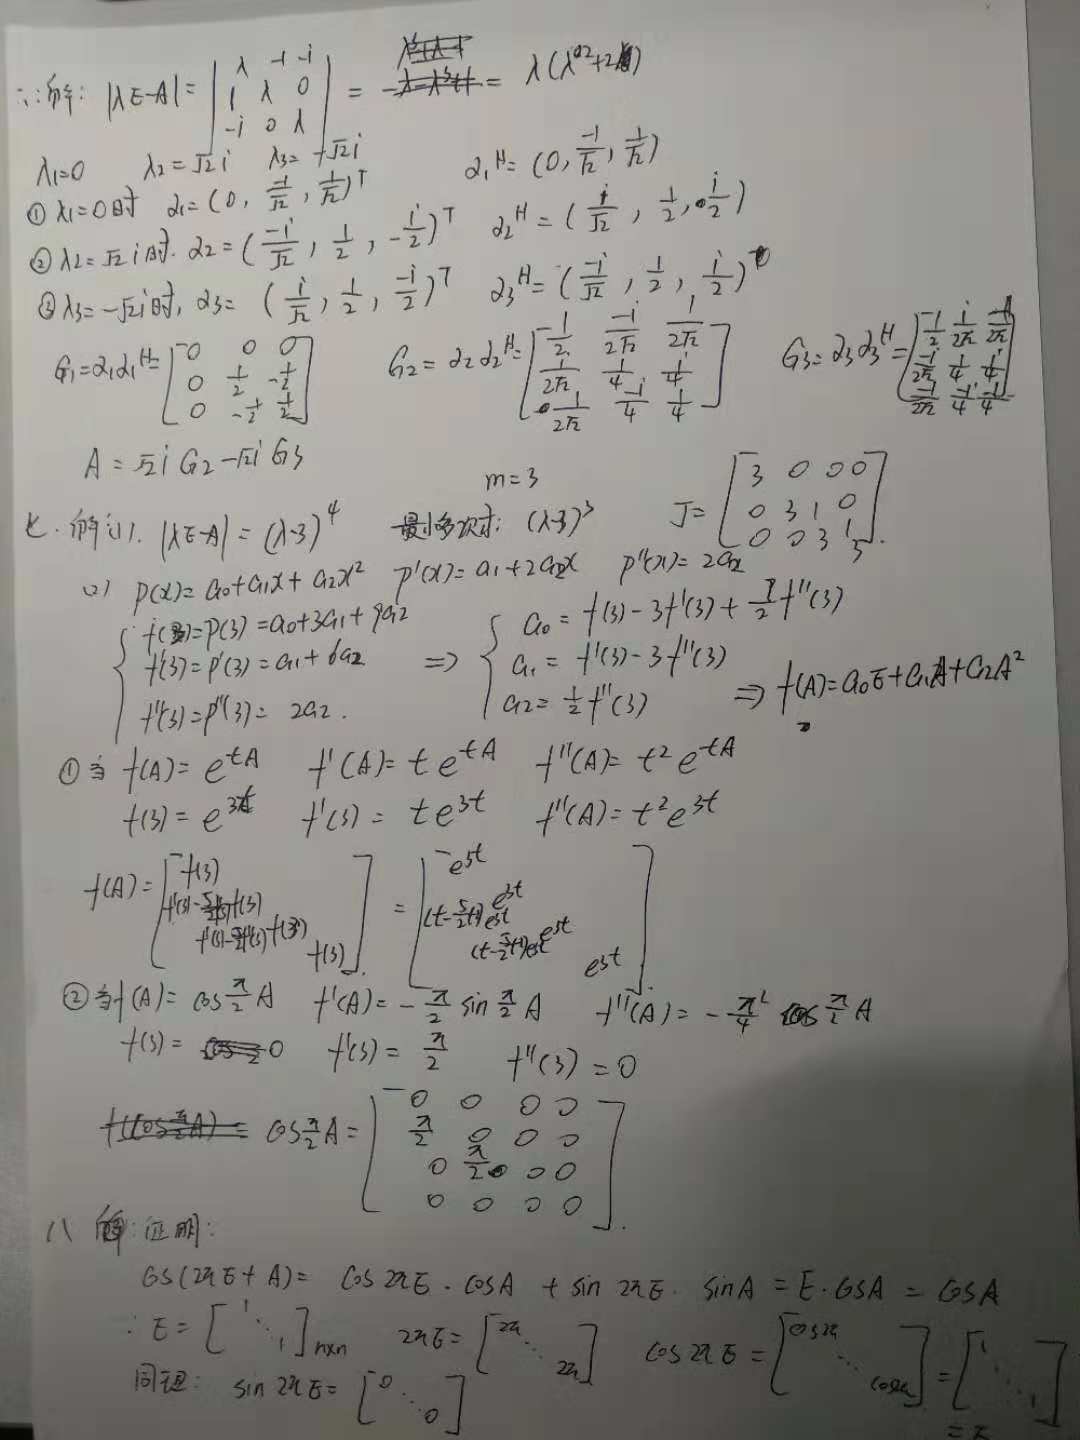 解: |λE-A| = | λ -1 -i ; 1 λ 0 ; -i 0 λ | = λ(λ²+2)
λ₁=0 λ₂=√2i λ₃=-√2i
① λ₁=0时 α₁=(0, -1/√2, 1/√2)ᵀ α₁ᴴ=(0, -1/√2, 1/√2)
② λ₂=√2i时. α₂=(-i/√2, 1/2, -i/2)ᵀ α₂ᴴ=(i/√2, 1/2, i/2)
③ λ₃=-√2i时, α₃=(i/√2, 1/2, -i/2)ᵀ α₃ᴴ=(-i/√2, 1/2, i/2)
G₁=α₁α₁ᴴ=[0 0 0 ; 0 1/2 -1/2 ; 0 -1/2 1/2] G₂=α₂α₂ᴴ=[1/2 -i/2√2 1/2√2 ; 1/2√2 1/4 1/4 ; 1/2√2 -i/4 1/4] G₃=α₃α₃ᴴ=[1/2 i/2√2 -1/2√2 ; -i/2√2 1/4 1/4 ; -1/2√2 -i/4 -1/4]
A = √2i G₂ - √2i G₃
m=3
七. 解(1). |λE-A| = (λ-3)⁴ 最小多项式: (λ-3)³ J=[3 0 0 0 ; 0 3 1 0 ; 0 0 3 1 ; 3].
(2) P(x)=a₀+a₁x+a₂x² P'(x)=a₁+2a₂x P''(x)=2a₂
f(3)=P(3)=a₀+3a₁+9a₂ a₀=f(3)-3f'(3)+9/2f''(3)
f'(3)=P'(3)=a₁+6a₂ ⇒ a₁=f'(3)-3f''(3)
f''(3)=P''(3)=2a₂. a₂=1/2f''(3) ⇒ f(A)=a₀E+a₁A+a₂A²
① 当 f(A)=e^{tA} f'(A)=te^{tA} f''(A)=t²e^{tA}
f(3)=e^{3t} f'(3)=te^{3t} f''(A)=t²e^{3t}
f(A)=[f(3) ; f(3) ; f(3) ; f(3)] = [e^{3t} ; (t-5/2t²)e^{3t} e^{3t} ; (t-5/2t²)e^{3t} e^{3t} ; e^{3t}]
② 当f(A)=cos π/2 A f'(A)=-π/2 sin π/2 A f''(A)=-π²/4 cos π/2 A
f(3)=0 f'(3)=π/2 f''(3)=0
cos π/2 A=[0 0 0 0 ; π/2 0 0 0 ; 0 π/2 0 0 ; 0 0 0 0].
八 证明:
cos(2πE+A)= cos2πE·cosA + sin2πE·sinA = E·cosA = cosA
∵ E=[1 ⋱ 1]n×n 2πE=[2π ⋱ 2π] cos2πE=[cos2π ⋱ cos2π]=[1 ⋱ 1]
=E
同理: sin2πE=[0 ⋱ 0]